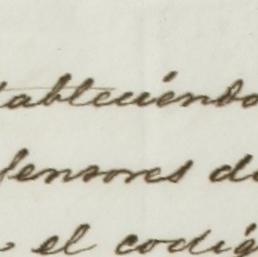 tableciéndo
fensores d
el codig